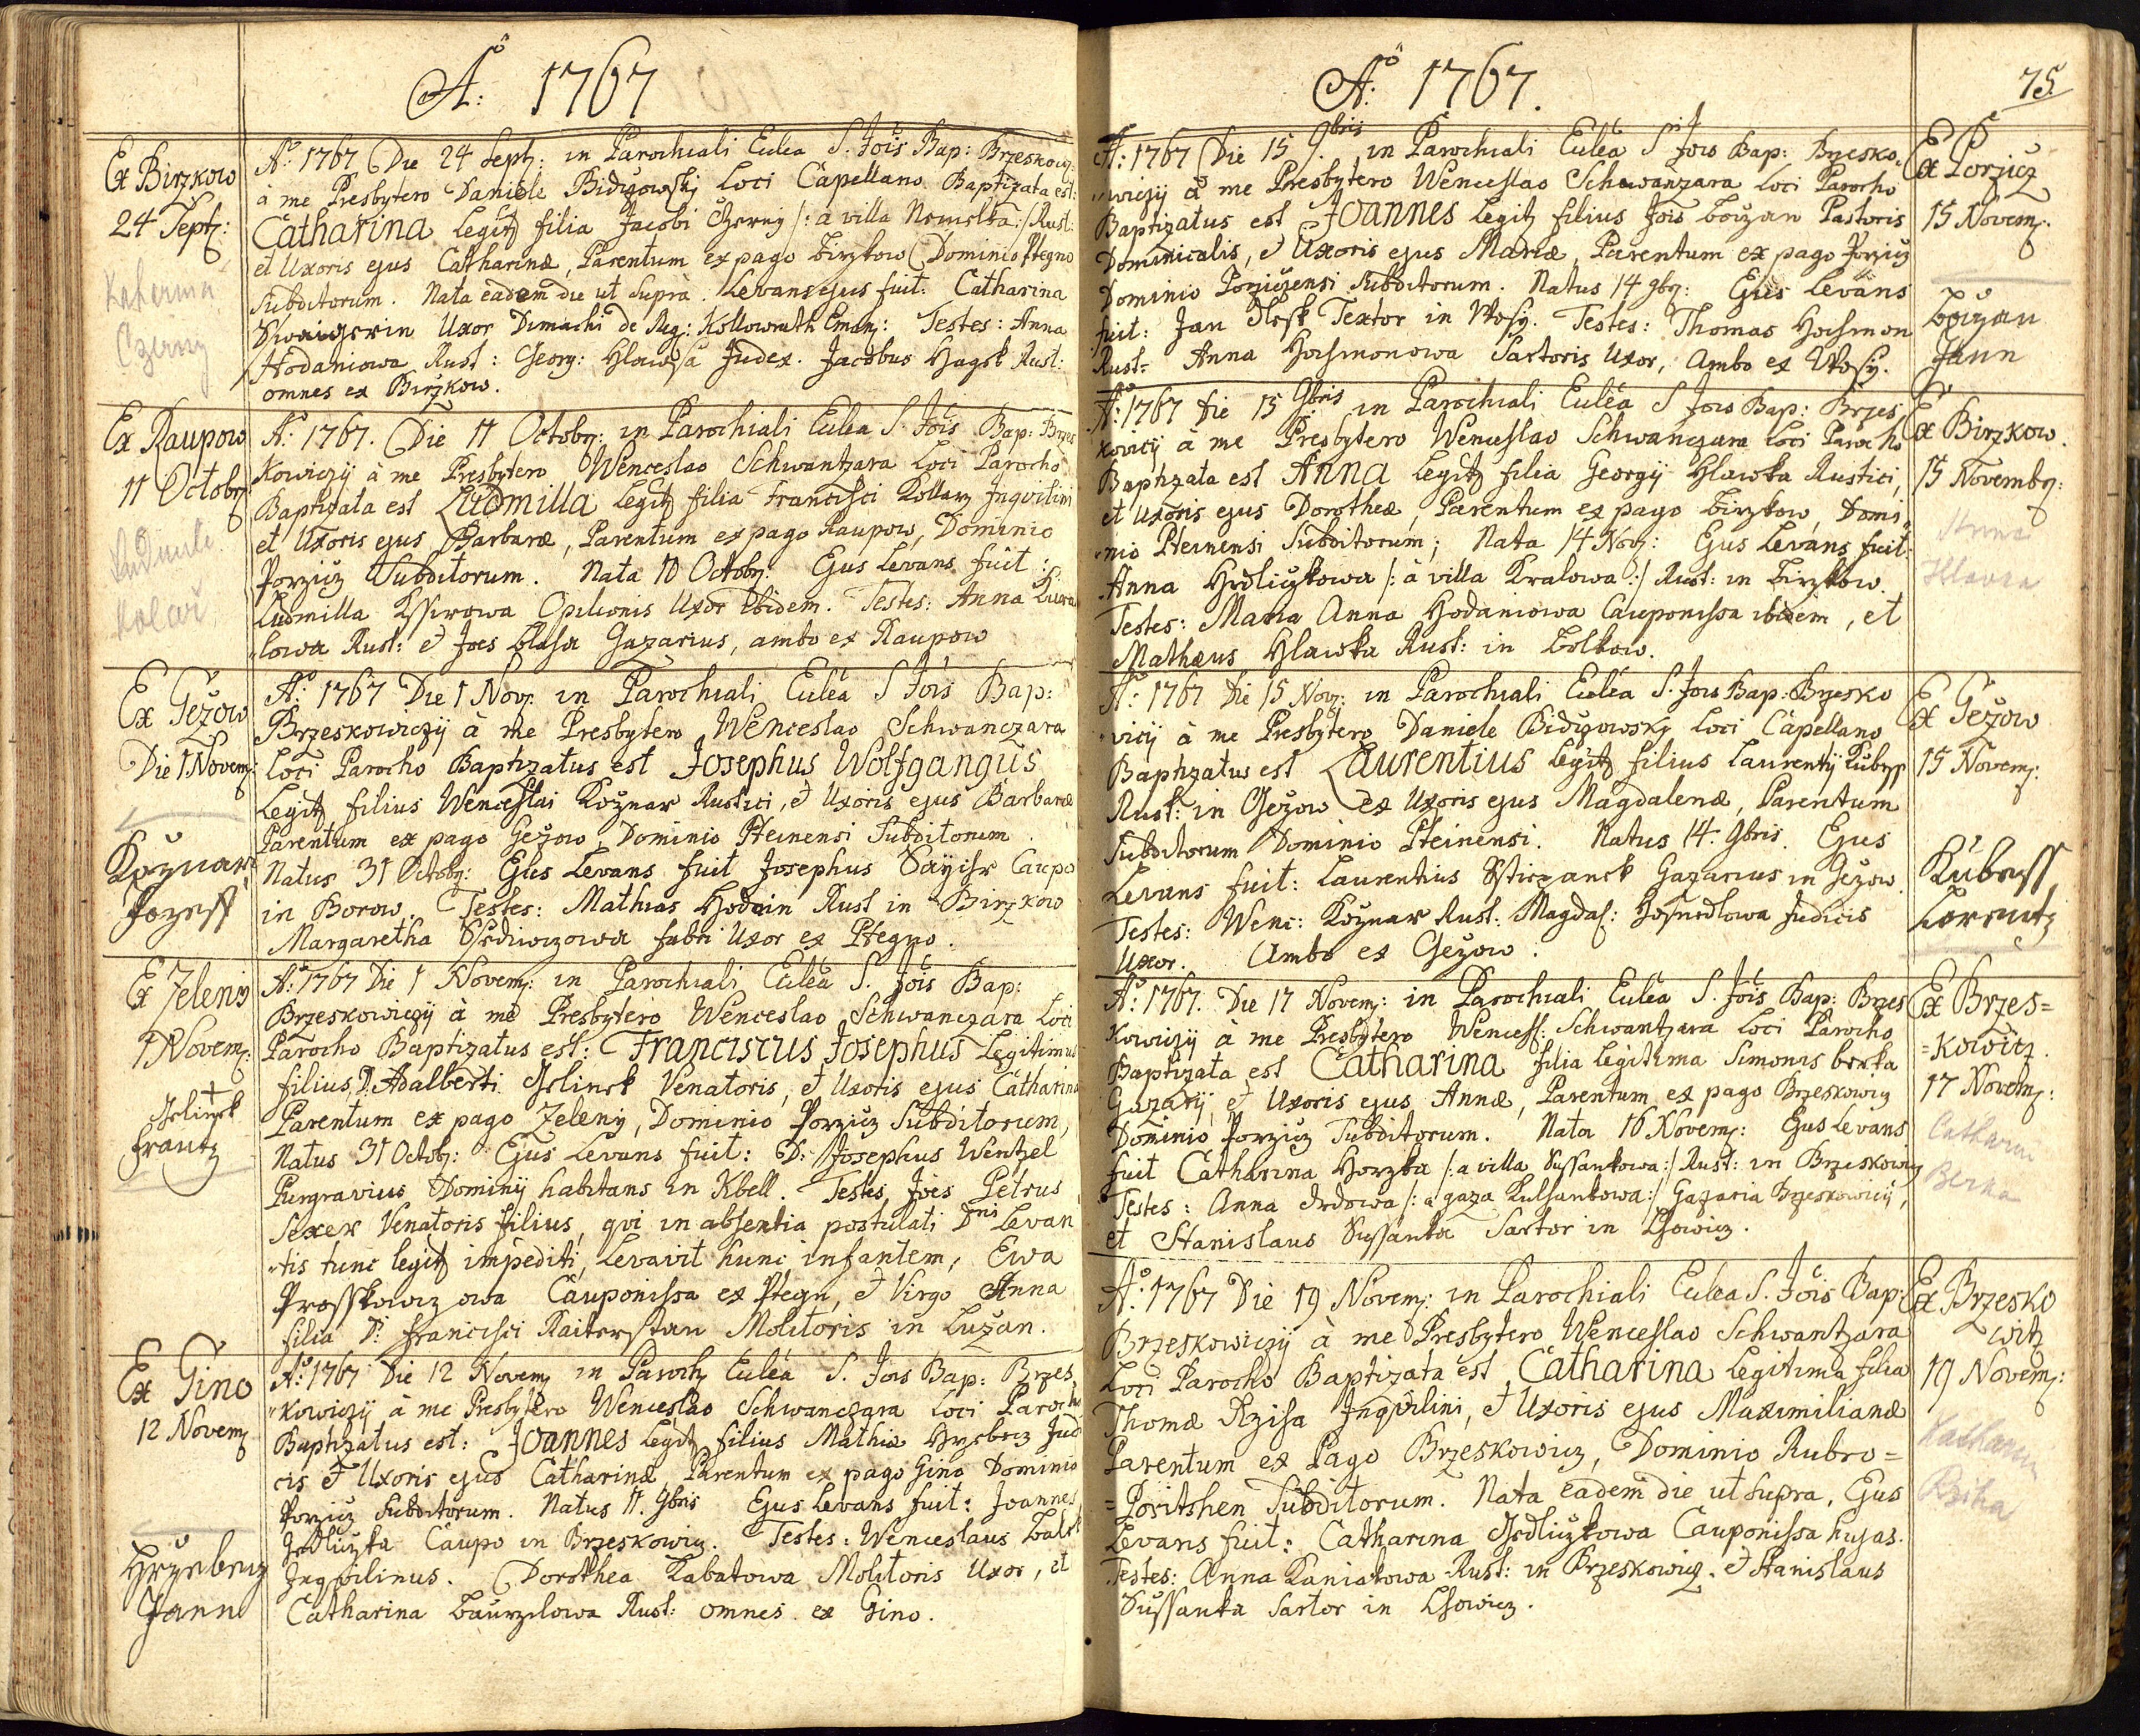 Aº: 1767
Ex Birzkow
24 Septz:
Katerina
Czerny
Aº: 1767 Die 24 Septz: in Parochiali Eccl[es]ia S. Jõis Bap: Brzeskowicz
à me Presbytero Daniele Bidizowskÿ Loci Capellano Baptizata est:
Catharina Legitz filia Jacobi Czerny /: a villa Nemelka :/ Rust:
et Uxoris ejus Catharinæ, Parentum ex pago Birzkow Dominio Ptegno
Subditorum. Nata eadem die ut Suprà. Levans ejus fuit: Catharina
Uxor de Reg: Kollowrath Testes: Anna
Hodaniowa Rust: Georg: Hlawsa Judex. Jacobus Hagek Rust:
omnes ex Birzkow.
Ex Raupow
11 Octobrz
Kolař
Aº: 1767. Die 11 Octobrz: in Parochiali Ecclea S. Jõis Bap: Brzes
kowiczÿ à me Presbytero Wenceslao Schwantzara Loci Parocho
Baptizata est Ludmilla Legitz filia Francisci Kollarz Inqvilini
et Uxoris ejus Barbaræ, Parentum ex pago Raupow, Dominio
Porzicz Subditorum. Nata 10 Octobrz: Ejus Levans fuit:
Ludmilla Kssirowa Opilionis Uxor ibidem. Testes: Anna
lowa Rust: et Joes Blaha Gazarius, ambo ex Raupow
Ex Gežow
Die 1 Novemz:
Kožnar
Jozeff
Aº: 1767 Die 1 Novz: in Parochiali Ecclea S Jõis Bap:
Brzeskowiczÿ à me Presbytero Wenceslao Schwanczara
Loci Parocho Baptizatus est Josephus Wolfgangus
Legitz filius Wenceslai Kožnar Rustici, et Uxoris ejus Barbaræ
Parentum ex pago Gežow, Dominio Pteinensi Subditorum.
Natus 31 Octobz: Ejus Levans fuit Josephus Caupo
in Borow. Testes: Mathias Hodain Rust in Birzkow
Margaretha fabri Uxor ex Ptegno.
Ex Zeleny
1 Novem:
Jelinek
Frantz
Aº: 1767 Die 1 Novemz: in Parochiali Ecclea S. Jõis Bap:
Brzeskowiczÿ à me Presbytero Wenceslao Schwanczara Loci
Parocho Baptizatus est: Franciscus Josephus Legitimus
filius D: Adalberti Jelinek Venatoris, et Uxoris ejus Catharinæ
Parentum ex pago Zeleny, Dominio Porzicz Subditorum,
Natus 31 Octobz: Ejus Levans fuit: D: Josephus Wentzel
Purgravius Dominij habitans in Kbell. Testes Joes Petrus
Sexer Venatoris filius, qvi in absentia postulati Dni Levan
"tis tunc legitz impediti, Levavit hunc infantem, Ewa
Prosskowiczowa Cauponissa ex Ptegn, et Virgo Anna
filia D: Francisci Raiterstan Molitoris in Lužan.
Ex Gino
12 Novemz
Hrzebecz
Jann
Aº: 1767 Die 12 Novemz in Parochz Ecclea S. Jois Bap: Brzes
"kowiczÿ à me Presbytero Wenceslao Schwanczara Loci Parocho
Baptizatus est: Joannes Legitz filius Mathiæ Hrzebecz Judi
cis et Uxoris ejus Catharinæ, Parentum ex pago Gino Dominio
Porzicz Subditorum. Natus 11. 9bris Ejus Levans fuit: Joannes
Jedliczka Caupo in Brzeskowicz. Testes: Wenceslaus
Inqvilinus. Dorothea Kabatowa Molitoris Uxor, et
Catharina Baurzilowa Rust: omnes ex Gino.
Aº: 1767.
75.
Aº: 1767 Die 15 9bris in Parochiali Ecclea S Jois Bap: Brzesko
"wiczÿ à me Presbytero Wenceslao Schwanzara Loci Parocho
Baptizatus est Joannes Legitz filius Jõis Bouzan Pastoris
Dominicalis, et Uxoris ejus Mariæ, Parentum ex pago Porzicz
Dominio Porziczensi Subditorum. Natus 14 9brz: Ejus Levans
fuit: Jan Textor in Wosy. Testes: Thomas Hochmon
Rust= Anna Hochmonowa Sartoris Uxor, Ambo ex Wosy.
Ex Porzicz
15 Novemz.
Bouzan
Jann
Aº: 1767 Die 15 9bris in Parochiali Ecclea S Jois Bap: Brzes
kovicÿ à me Presbytero Wenceslao Schwanczara Loci Parocho
Baptizata est Anna Legitz filia Georgij Hlawka Rustici,
et Uxoris ejus Dorotheæ, Parentum ex pago Birzkow, Domi
"nio Pteinensi Subditorum; Nata 14 Novz: Ejus Levans fuit:
Anna Hrdliczkowa /: à villa Kralowa :/ Rust: in Birzkow.
Testes: Maria Anna Hodaniowa Cauponissa ibidem, et
Mathæus Hlawka Rust: in Bolkow.
Ex Birzkow.
15 Novembrz:
Anna
Hlavka
Aº: 1767 Die 15 Novz: in Parochiali Ecclea S. Jois Bap: Brzesko
"vicij à me Presbytero Daniele Bidizowsky Loci Capellano
Baptizatus est Laurentius Legitz filius Laurentij Kubess
Rust: in Gežow et Uxoris ejus Magdalenæ, Parentum
Subditorum Dominio Pteinensi. Natus 14. 9bris. Ejus
Levans fuit: Laurentius Gazarius in Gežow.
Testes: Wenc: Kožnar Rust. Magdal: Judicis
Uxor. Ambo ex Gežow.
Ex Gežow
15 Novemz:
Kubess
Lorentz
Aº: 1767. Die 17 Novemz: in Parochiali Ecclea S. Jõis Bap: Brzes
kowiczÿ à me Presbytero Wencesl: Schwantzara Loci Parocho
Baptizata est Catharina filia Legitima Simonis berka
Gazarij, et Uxoris ejus Annæ, Parentum ex pago Brzeskowicz
Dominio Porzicz Subditorum. Nata 16 Novemz: Ejus Levans
fuit Catharina Horzka /: a villa Sussankowa :/ Rust: in Brzeskowicz
Testes: Anna /: a gaza :/ Gazaria Brzeskowicij,
et Stanislaus Sussanka Sartor in Lhowicz.
Ex Brzes=
=kowicz.
17 Novemz:
Catharin
Berka
Aº: 1767 Die 19 Novemz: in Parochiali Ecclea S. Jõis Bap:
Brzeskowiczÿ à me Presbytero Wenceslao Schwantzara
Loci Parocho Baptizata est Catharina Legitima filia
Thomæ Rziha Inqvilini, et Uxoris ejus Maximilianæ
Parentum ex Pago Brzeskowicz, Dominio Rubro=
=Poritshen Subditorum. Nata eadem die ut Supra, Ejus
Levans fuit: Catharina Jedliczkowa Cauponissa hujas.
Testes: Anna Kaniakowa Rust: in Brzeskowicz. et Stanislaus
Sussanka Sartor in Lhowicz.
Ex Brzesko
witz
19 Novemz:
Katharin
Rziha